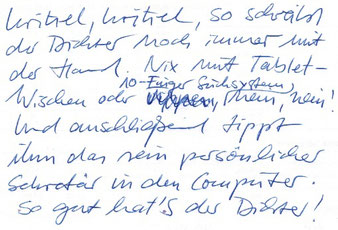 Kritzel, kritzel, so schreibt
der Dichter noch immer mit
der Hand. Nix mit Tablet-
10-Finger Suchsystem,
Wischen oder nein, nein!
Und anschließend tippt
ihm das sein persönlicher
Sekretär in den Computer.
So gut hat's der Dichter!